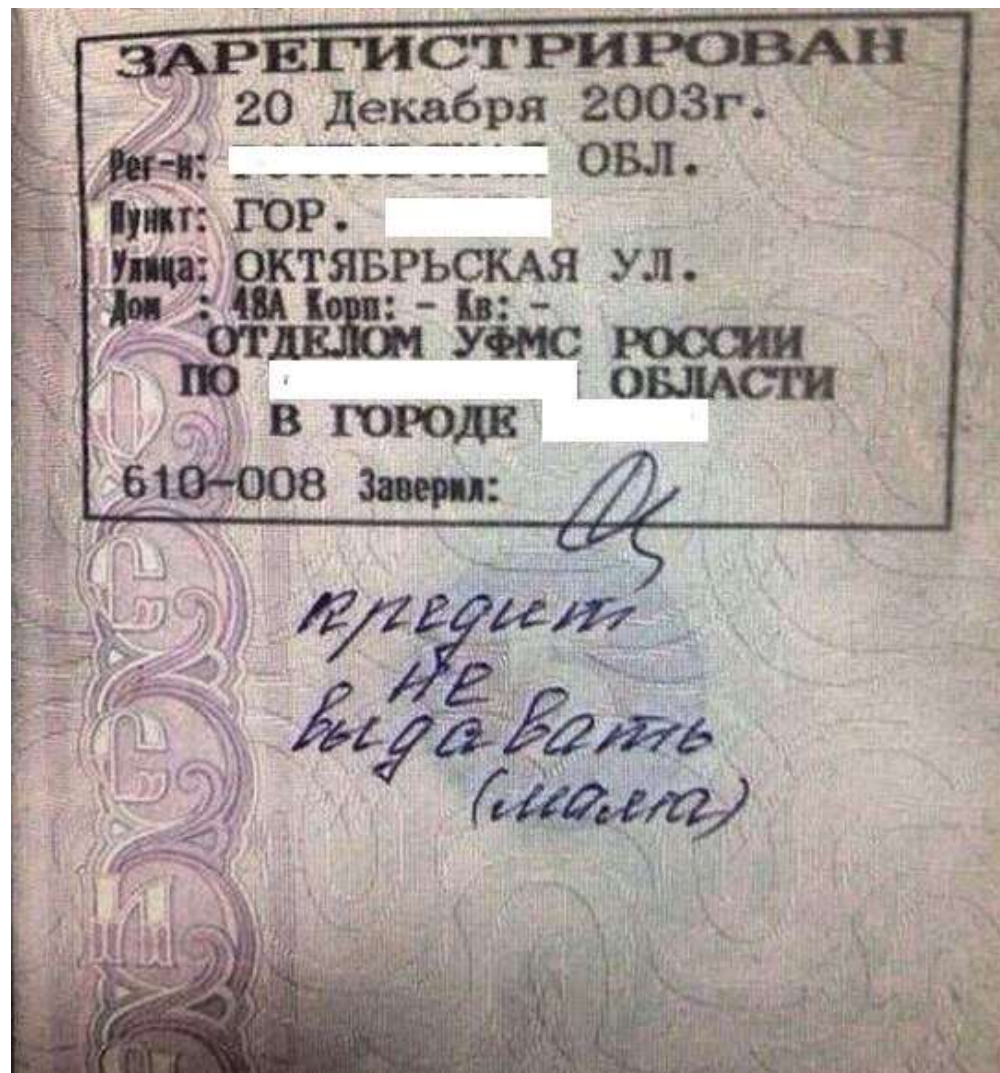 ЗАРЕГИСТРИРОВАН
20 Декабря 2003г.
Рег-н: ОБЛ.
Пункт: ГОР.
Улица: ОКТЯБРЬСКАЯ УЛ.
Дом : 48А Корп: - Кв: -
ОТДЕЛОМ УФМС РОССИИ
ПО ОБЛАСТИ
В ГОРОДЕ
610-008 Заверил:
кредит
не
выдавать
(мама)